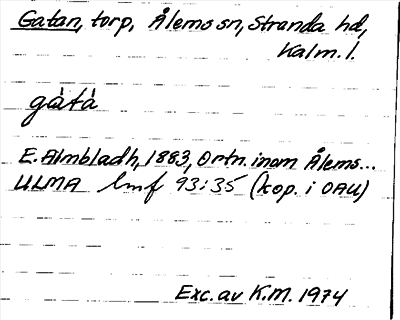 Gatan, torp, Ålems sn, Stranda hd,
Kalm. l.
gàtà
E. Almbladh, 1883, Ortn. inom Ålems...
ULMA lmf 93:35 (kop. i OAU)
Exc. av K.M. 1974